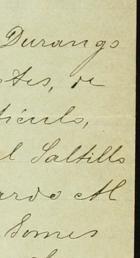 Durango
tes, de
tículo,
l Saltillo
ardo M
Gomes